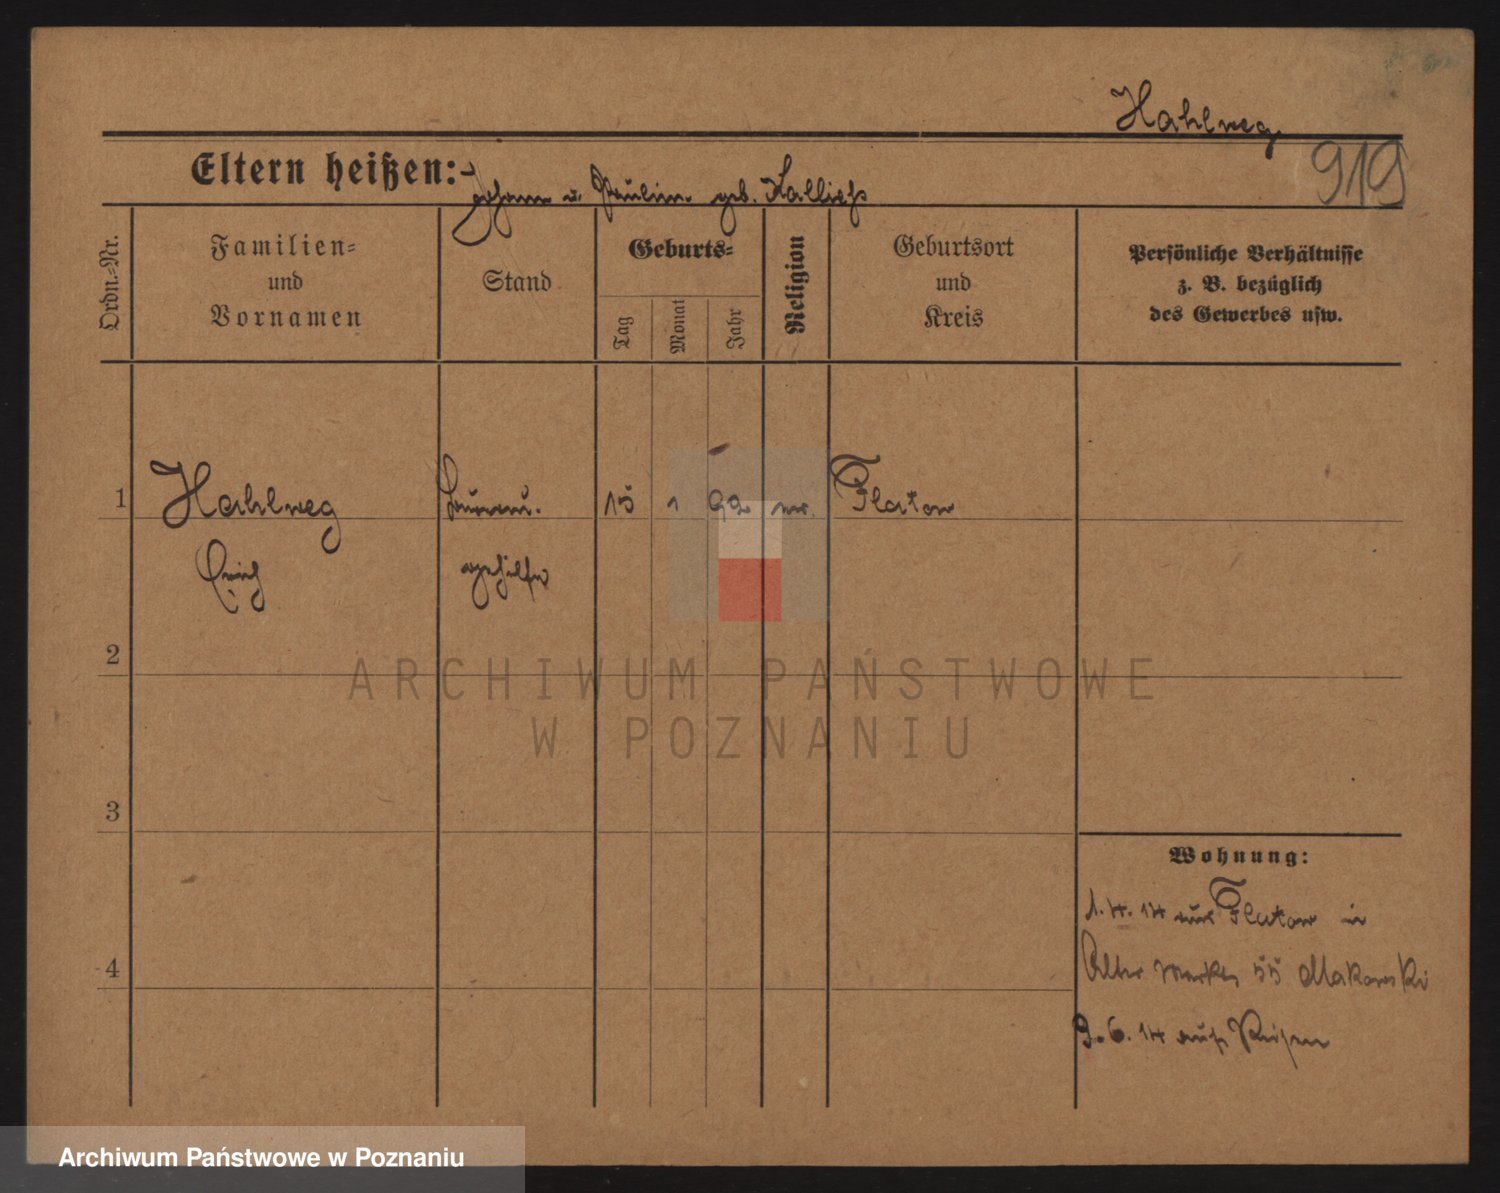 Hahlweg
919
Eltern heißen:
Johann u. Paulin. geb. Kalließ
Ordn.-Nr.
Familien-
und
Vornamen
Stand
Geburts-
Tag
Monat
Jahr
Religion
Geburtsort
und
Kreis
Persönliche Verhältnisse
z. B. bezüglich
des Gewerbes usw.
1
Hahlweg
15 1 92
Flatow
Erich
gehilfe
2
ARCHIWUM PAŃSTWOWE
W POZNANIU
3
Wohnung:
1.4.14 aus Flatow in
Alter Markt 55 Makowski
4
9.6.14 auf Reisen
Archiwum Państwowe w Poznaniu